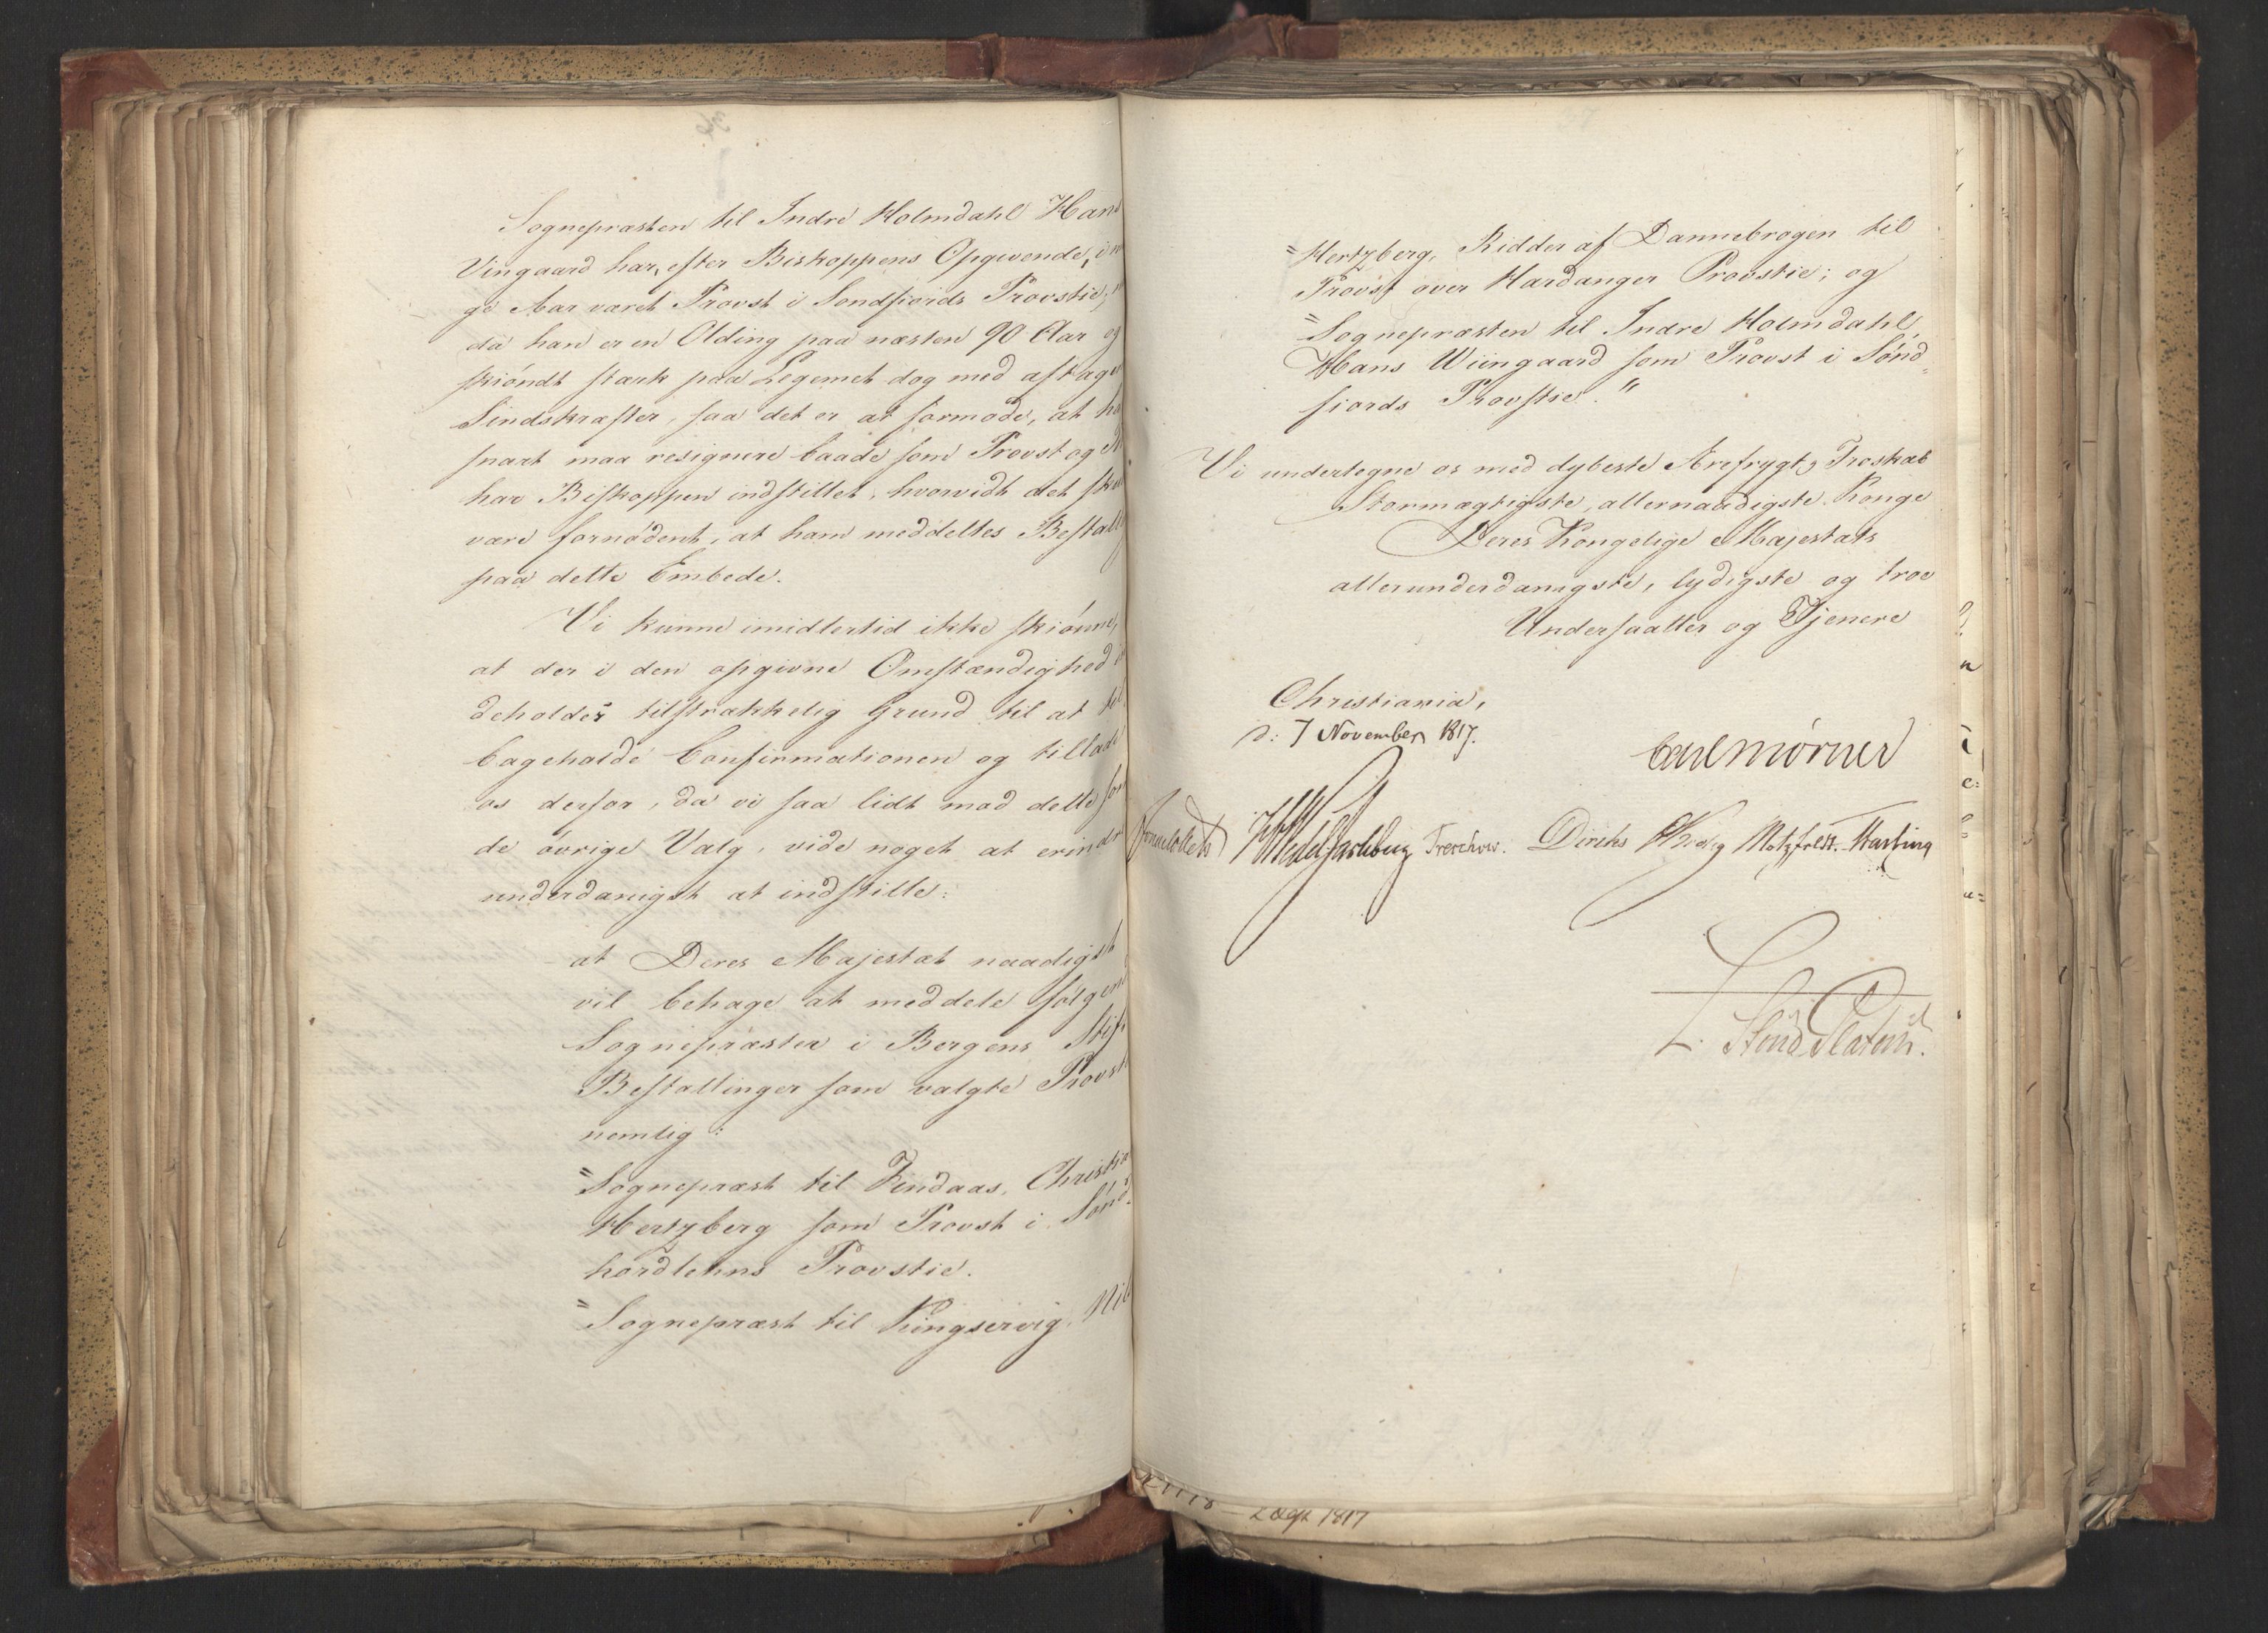 Sognepræsten til Indre Holmdahl Hans
Vingaard har, efter Biskoppens Opgivende,
ge Aar været Provst i Søndfiords Provstie;
da han er en Olding paa næsten 90 Aar og
skiøndt stærk paa Legemet dog med aftage
Sindskræfter, saa det er at formode, at ha
snart maa resignere baade som Provst og
har Biskoppen indstillet, hvorvidt det sku
være fornødent, at ham meddeltes Bestall
paa dette Embede.
Vi kunne imidlertid ikke skiønne,
at der i den opgivne Omstændighed
deholdes tilstrækkelig Grund til at til
bageholde Confirmationen og tillade
os derfor, da vi saa lidt mod dette som
de øvrige Valg, vide noget at erindre
underdanigst at indstille:
at Deres Majestæt naadigst
vil behage at meddele følgend
Sognepræster i Bergens Stif
Bestallinger som valgte Provst
nemlig:
"Sognepræst til Findaas, Christia
Hertzberg som Provst i Sønd
hordlehns Provstie.
"Sognepræst til Kingservig, Nil
"Hertzberg, Ridder af Dannebrogen til
Provst over Hardanger Provstie; og
"Sognepræsten til Indre Holmdahl,
Hans Wiingaard som Provst i Sønd-
fiords Provstie."
Vi undertegne os med dybeste Ærefrygt og Troskab
Stormægtigste, allernaadigste Konge
Deres Kongelige Majestæts
allerunderdanigste, lydigste og troe
Undersaatter og Tjenere
Christiania,
d: 7 November 1817.
Carl Mörner
Sommerhielm Wedel Jarlsberg Treschow. Diriks Krog Motzfeldt. Fasting
L. Stoud Platou
2 Dept 1817